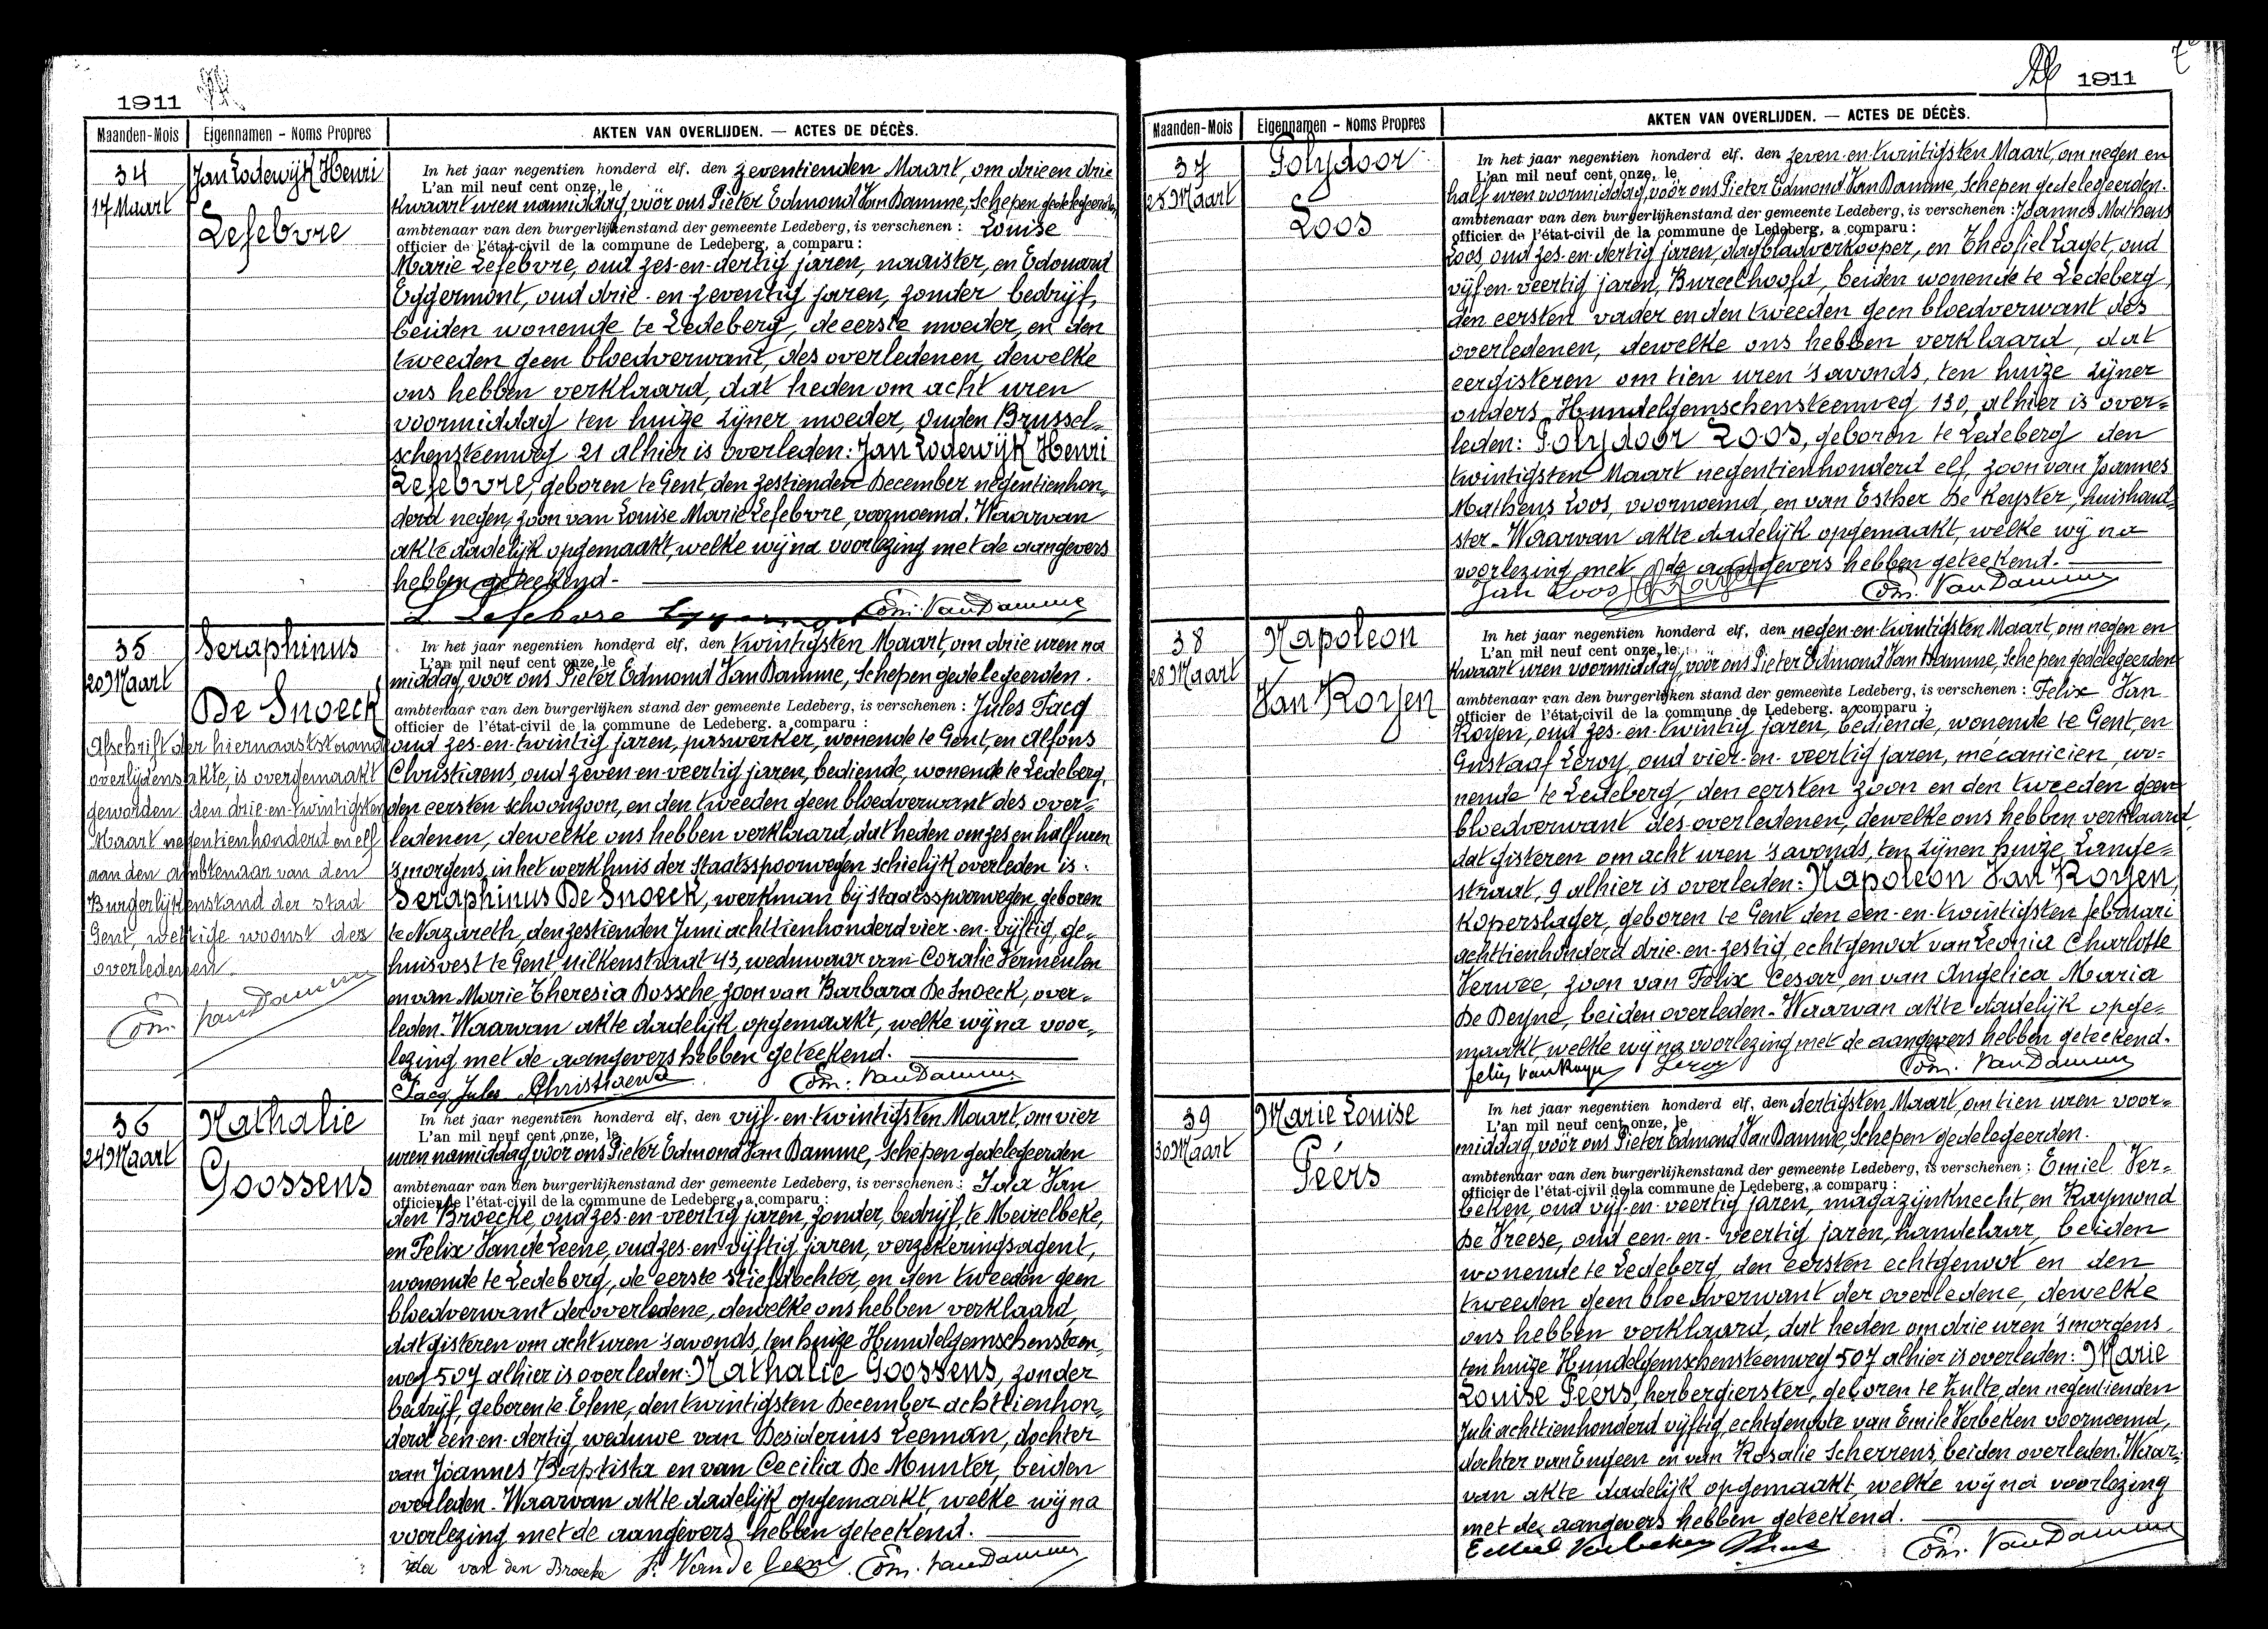 1911
Maanden-Mois
Eigennamen - Noms Propres
AKTEN VAN OVERLIJDEN. — ACTES DE DÉCÈS.
34
17 Maart
Jan Lodewijk Henri
Lefebvre
In het jaar negentien honderd elf. den zeventienden Maart, om drie en drie
L'an mil neuf cent onze, le
kwaart uren namiddag, voor ons Pieter Edmond Van Damme, Schepen gedelegeerden
ambtenaar van den burgerlijkenstand der gemeente Ledeberg, is verschenen : Louise
officier de l'état-civil de la commune de Ledeberg, a comparu :
Marie Lefebvre, oud zes-en-dertig jaren, naaister, en Edouard
Eggermont, oud drie-en-zeventig jaren, zonder bedrijf,
beiden wonende te Ledeberg, de eerste moeder, en den
tweeden geen bloedverwant, des overledenen, dewelke
ons hebben verklaard, dat heden om acht uren
voormiddag ten huize zijner moeder, ouden Brussel-
schensteenweg 21 alhier is overleden: Jan Lodewijk Henri
Lefebvre, geboren te Gent, den zestienden December negentienhon-
derd negen, zoon van Louise Marie Lefebvre, voornoemd. Waarvan
akte dadelijk opgemaakt, welke wij na voorlezing met de aangevers
hebben geteekend-
L Lefebvre Edm. Van Damme
35
20 Maart
Seraphinus
De Snoeck
Afschrift der hiernaaststaande
overlijdensakte, is overgemaakt
geworden den drie-en-twintigsten
Maart negentienhonderd en elf
aan den ambtenaar van den
Burgerlijkenstand der stad
Gent, wettige woonst des
overledenen.
Edm. Van Damme
In het jaar negentien honderd elf, den twintigsten Maart, om drie uren na
L'an mil neuf cent onze, le
middag, voor ons Pieter Edmond Van Damme, Schepen gedelegeerden.
ambtenaar van den burgerlijken stand der gemeente Ledeberg, is verschenen : Jules Tacq
officier de l'état-civil de la commune de Ledeberg. a comparu :
oud zes-en-twintig jaren, paswerker, wonende te Gent, en Alfons
Christiaens, oud zeven-en-veertig jaren, bediende, wonende te Ledeberg,
den eersten schoonzoon, en den tweeden geen bloedverwant des over-
ledenen, dewelke ons hebben verklaard, dat heden om zes en half uren
's morgens, in het werkhuis der Staatsspoorwegen schielijk overleden is:
Seraphinus De Snoeck, werkman bij Staatsspoorwegen, geboren
te Nazareth, den zestienden Juni achttienhonderd vier-en-vijftig, ge-
huisvest te Gent, Uilkenstraat 43, weduwaar van Coralie Vermeulen
en van Marie Theresia Dossche, zoon van Barbara De Snoeck, over-
leden. Waarvan akte dadelijk opgemaakt, welke wij na voor-
lezing met de aangevers hebben geteekend.
Tacq Jules Christiaens Edm. Van Damme
36
24 Maart
Nathalie
Goossens
In het jaar negentien honderd elf, den vijf-en-twintigsten Maart, om vier
L'an mil neuf cent onze, le
uren namiddag, voor ons Pieter Edmond Van Damme, Schepen gedelegeerden
ambtenaar van den burgerlijkenstand der gemeente Ledeberg, is verschenen : Ida Van
officier de l'état-civil de la commune de Ledeberg, a comparu :
den Broecke, oud zes-en-veertig jaren, zonder bedrijf, te Meirelbeke,
en Felix Van de Leene, oud zes-en-vijftig jaren, verzekeringsagent,
wonende te Ledeberg, de eerste stiefdochter, en den tweeden geen
bloedverwant der overledene, dewelke ons hebben verklaard,
dat gisteren om acht uren 's avonds, ten huize Hundelgemschensteen-
weg 507 alhier is overleden: Nathalie Goossens, zonder
bedrijf, geboren te Elene, den twintigsten December achttienhon-
derd een-en-dertig, weduwe van Desiderius Leeman, dochter
van Joannes Baptista en van Cecilia De Munter, beiden
overleden. Waarvan akte dadelijk opgemaakt, welke wij na
voorlezing met de aangevers hebben geteekend.
Ida van den Broecke F. Van de Leene Edm. Van Damme
1911
Maanden-Mois
Eigennamen - Noms Propres
AKTEN VAN OVERLIJDEN. — ACTES DE DÉCÈS.
37
25 Maart
Polydoor
Loos
In het jaar negentien honderd elf. den zeven-en-twintigsten Maart, om negen en
L'an mil neuf cent onze, le
half uren voormiddag, voor ons Pieter Edmond Van Damme, Schepen gedelegeerden.
ambtenaar van den burgerlijkenstand der gemeente Ledeberg, is verschenen : Joannes Matheus
officier de l'état-civil de la commune de Ledeberg, a comparu :
Loos, oud zes-en-dertig jaren, dagbladverkooper, en Theofiel Laget, oud
vijf-en-veertig jaren, Bureelhoofd, beiden wonende te Ledeberg,
den eersten vader en den tweeden geen bloedverwant des
overledenen, dewelke ons hebben verklaard, dat
eergisteren om tien uren 's avonds, ten huize zijner
ouders Hundelgemschensteenweg 130, alhier is over-
leden: Polydoor Loos, geboren te Ledeberg den
twintigsten Maart negentienhonderd elf, zoon van Joannes
Matheus Loos, voornoemd, en van Esther De Keyster, huishoud-
ster. Waarvan akte dadelijk opgemaakt, welke wij na
voorlezing met de aangevers hebben geteekend.
Jan Loos Edm. Van Damme
38
28 Maart
Napoleon
Van Royen
In het jaar negentien honderd elf, den negen-en-twintigsten Maart, om negen en
L'an mil neuf cent onze, le
kwaart uren voormiddag, voor ons Pieter Edmond Van Damme, Schepen gedelegeerden
ambtenaar van den burgerlijken stand der gemeente Ledeberg, is verschenen : Felix Van
officier de l'état-civil de la commune de Ledeberg. a comparu :
Royen, oud zes-en-twintig jaren, bediende, wonende te Gent, en
Gustaaf Leroy, oud vier-en-veertig jaren, mécanicien, wo-
nende te Ledeberg, den eersten zoon en den tweeden geen
bloedverwant des overledenen, dewelke ons hebben verklaard,
dat gisteren om acht uren 's avonds, ten zijnen huize, Lange-
straat, 9 alhier is overleden: Napoleon Van Royen,
koperslager, geboren te Gent den een-en-twintigsten februari
achttienhonderd drie-en-zestig, echtgenoot van Leonia Charlotte
Verwee, zoon van Felix Cesar, en van Angelica Maria
De Deyne, beiden overleden. Waarvan akte dadelijk opge-
maakt, welke wij na voorlezing met de aangevers hebben geteekend.
Felix Van Royen Leroy Edm. Van Damme
39
30 Maart
Marie Louise
Péérs
In het jaar negentien honderd elf, den dertigsten Maart, om tien uren voor-
L'an mil neuf cent onze, le
middag, voor ons Pieter Edmond Van Damme, Schepen gedelegeerden.
ambtenaar van den burgerlijkenstand der gemeente Ledeberg, is verschenen : Emiel Ver-
officier de l'état-civil de la commune de Ledeberg, a comparu :
beken, oud vijf-en-veertig jaren, magazijnknecht, en Raymond
De Vreese, oud een-en-veertig jaren, handelaar, beiden
wonende te Ledeberg, den eersten echtgenoot en den
tweeden geen bloedverwant der overledene, dewelke
ons hebben verklaard, dat heden om drie uren 's morgens,
ten huize Hundelgemschensteenweg 507 alhier is overleden: Marie
Louise Peers, herbergierster, geboren te Zulte, den negentienden
Juli achttienhonderd vijftig, echtgenote van Emile Verbeken voornoemd,
dochter van Eugeen en van Rosalie Scherrens, beiden overleden. Waar-
van akte dadelijk opgemaakt, welke wij na voorlezing
met de aangevers hebben geteekend.
Emiel Verbeken Edm. Van Damme